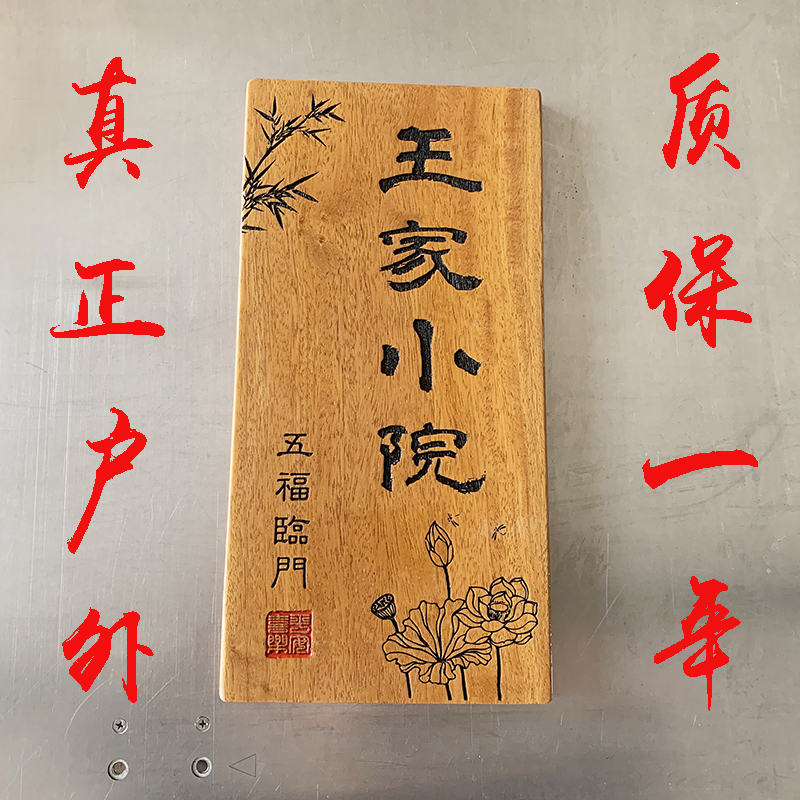 真正户外
王家小院
五福臨門
质保一年